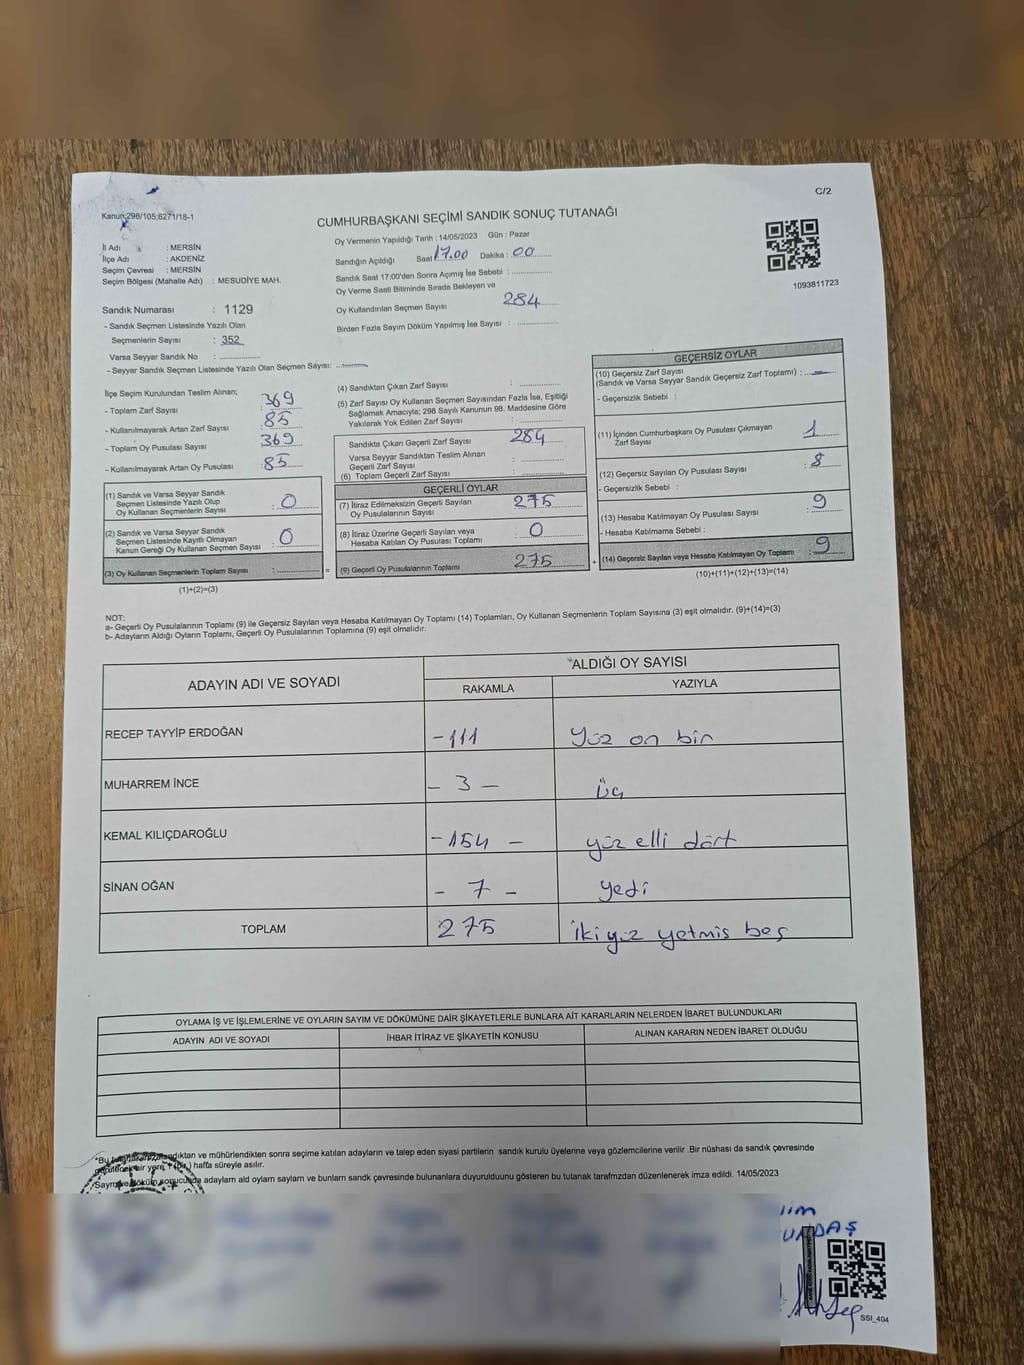 C/2
Kanun:298/105;6271/18-1
CUMHURBAŞKANI SEÇİMİ SANDIK SONUÇ TUTANAĞI
İl Adı : MERSİN
İlçe Adı : AKDENİZ
Seçim Çevresi : MERSİN
Seçim Bölgesi (Mahalle Adı) : MESUDİYE MAH.
Sandık Numarası : 1129
- Sandık Seçmen Listesinde Yazılı Olan
Seçmenlerin Sayısı : 352
Varsa Seyyar Sandık No :
- Seyyar Sandık Seçmen Listesinde Yazılı Olan Seçmen Sayısı:
Oy Vermenin Yapıldığı Tarih : 14/05/2023 Gün : Pazar
Sandığın Açıldığı Saat 17.00 Dakika : 00
Sandık Saat 17:00'den Sonra Açımış İse Sebebi :
Oy Verme Saati Bitiminde Sırada Bekleyen ve
Oy Kullandırılan Seçmen Sayısı 284
Birden Fazla Sayım Döküm Yapılmış İse Sayısı :
1093811723
İlçe Seçim Kurulundan Teslim Alınan;
- Toplam Zarf Sayısı : 369
- Kullanılmayarak Artan Zarf Sayısı : 85
- Toplam Oy Pusulası Sayısı : 369
- Kullanılmayarak Artan Oy Pusulası : 85
(1) Sandık ve Varsa Seyyar Sandık
Seçmen Listesinde Yazılı Olup
Oy Kullanan Seçmenlerin Sayısı : 0
(2) Sandık ve Varsa Seyyar Sandık
Seçmen Listesinde Kayıtlı Olmayan
Kanun Gereği Oy Kullanan Seçmen Sayısı : 0
(3) Oy Kullanan Seçmenlerin Toplam Sayısı : =
(1)+(2)=(3)
(4) Sandıktan Çıkan Zarf Sayısı :
(5) Zarf Sayısı Oy Kullanan Seçmen Sayısından Fazla İse, Eşitliği
Sağlamak Amacıyla; 298 Sayılı Kanunun 98. Maddesine Göre
Yakılarak Yok Edilen Zarf Sayısı :
Sandıkta Çıkan Geçerli Zarf Sayısı 284
Varsa Seyyar Sandıktan Teslim Alınan
Geçerli Zarf Sayısı :
(6) Toplam Geçerli Zarf Sayısı :
GEÇERLİ OYLAR
(7) İtiraz Edilmeksizin Geçerli Sayılan
Oy Pusulalarının Sayısı 275
(8) İtiraz Üzerine Geçerli Sayılan veya
Hesaba Katılan Oy Pusulası Toplamı 0
(9) Geçerli Oy Pusulalarının Toplamı 275 +
GEÇERSİZ OYLAR
(10) Geçersiz Zarf Sayısı
(Sandık ve Varsa Seyyar Sandık Geçersiz Zarf Toplamı) :
- Geçersizlik Sebebi :
(11) İçinden Cumhurbaşkanı Oy Pusulası Çıkmayan
Zarf Sayısı 1
(12) Geçersiz Sayılan Oy Pusulası Sayısı : 8
- Geçersizlik Sebebi :
(13) Hesaba Katılmayan Oy Pusulası Sayısı : 9
- Hesaba Katılmama Sebebi :
(14) Geçersiz Sayılan veya Hesaba Katılmayan Oy Toplamı : 9
(10)+(11)+(12)+(13)=(14)
NOT:
a- Geçerli Oy Pusulalarının Toplamı (9) ile Geçersiz Sayılan veya Hesaba Katılmayan Oy Toplamı (14) Toplamları, Oy Kullanan Seçmenlerin Toplam Sayısına (3) eşit olmalıdır. (9)+(14)=(3)
b- Adayların Aldığı Oyların Toplamı, Geçerli Oy Pusulalarının Toplamına (9) eşit olmalıdır.
ADAYIN ADI VE SOYADI
ALDIĞI OY SAYISI
RAKAMLA YAZIYLA
RECEP TAYYİP ERDOĞAN -111 Yüz on bir
MUHARREM İNCE - 3 - üç
KEMAL KILIÇDAROĞLU -154 - yüz elli dört
SİNAN OĞAN - 7 - yedi
TOPLAM 275 iki yüz yetmis beş
OYLAMA İŞ VE İŞLEMLERİNE VE OYLARIN SAYIM VE DÖKÜMÜNE DAİR ŞİKAYETLERLE BUNLARA AİT KARARLARIN NELERDEN İBARET BULUNDUKLARI
ADAYIN ADI VE SOYADI İHBAR İTİRAZ VE ŞİKAYETİN KONUSU ALINAN KARARIN NEDEN İBARET OLDUĞU
*Bu mühürlendikten sonra seçime katılan adayların ve talep eden siyasi partilerin sandık kurulu üyelerine veya gözlemcilerine verilir .Bir nüshası da sandık çevresinde
bir yere (bir) hafta süreyle asılır.
Sayım ve döküm sonucunda adayların ald oyların saylam ve bunlarn sandk çevresinde bulunanlara duyurulduunu gösteren bu tutanak tarafmzdan düzenlenerek imza edildi. 14/05/2023
SSI_404